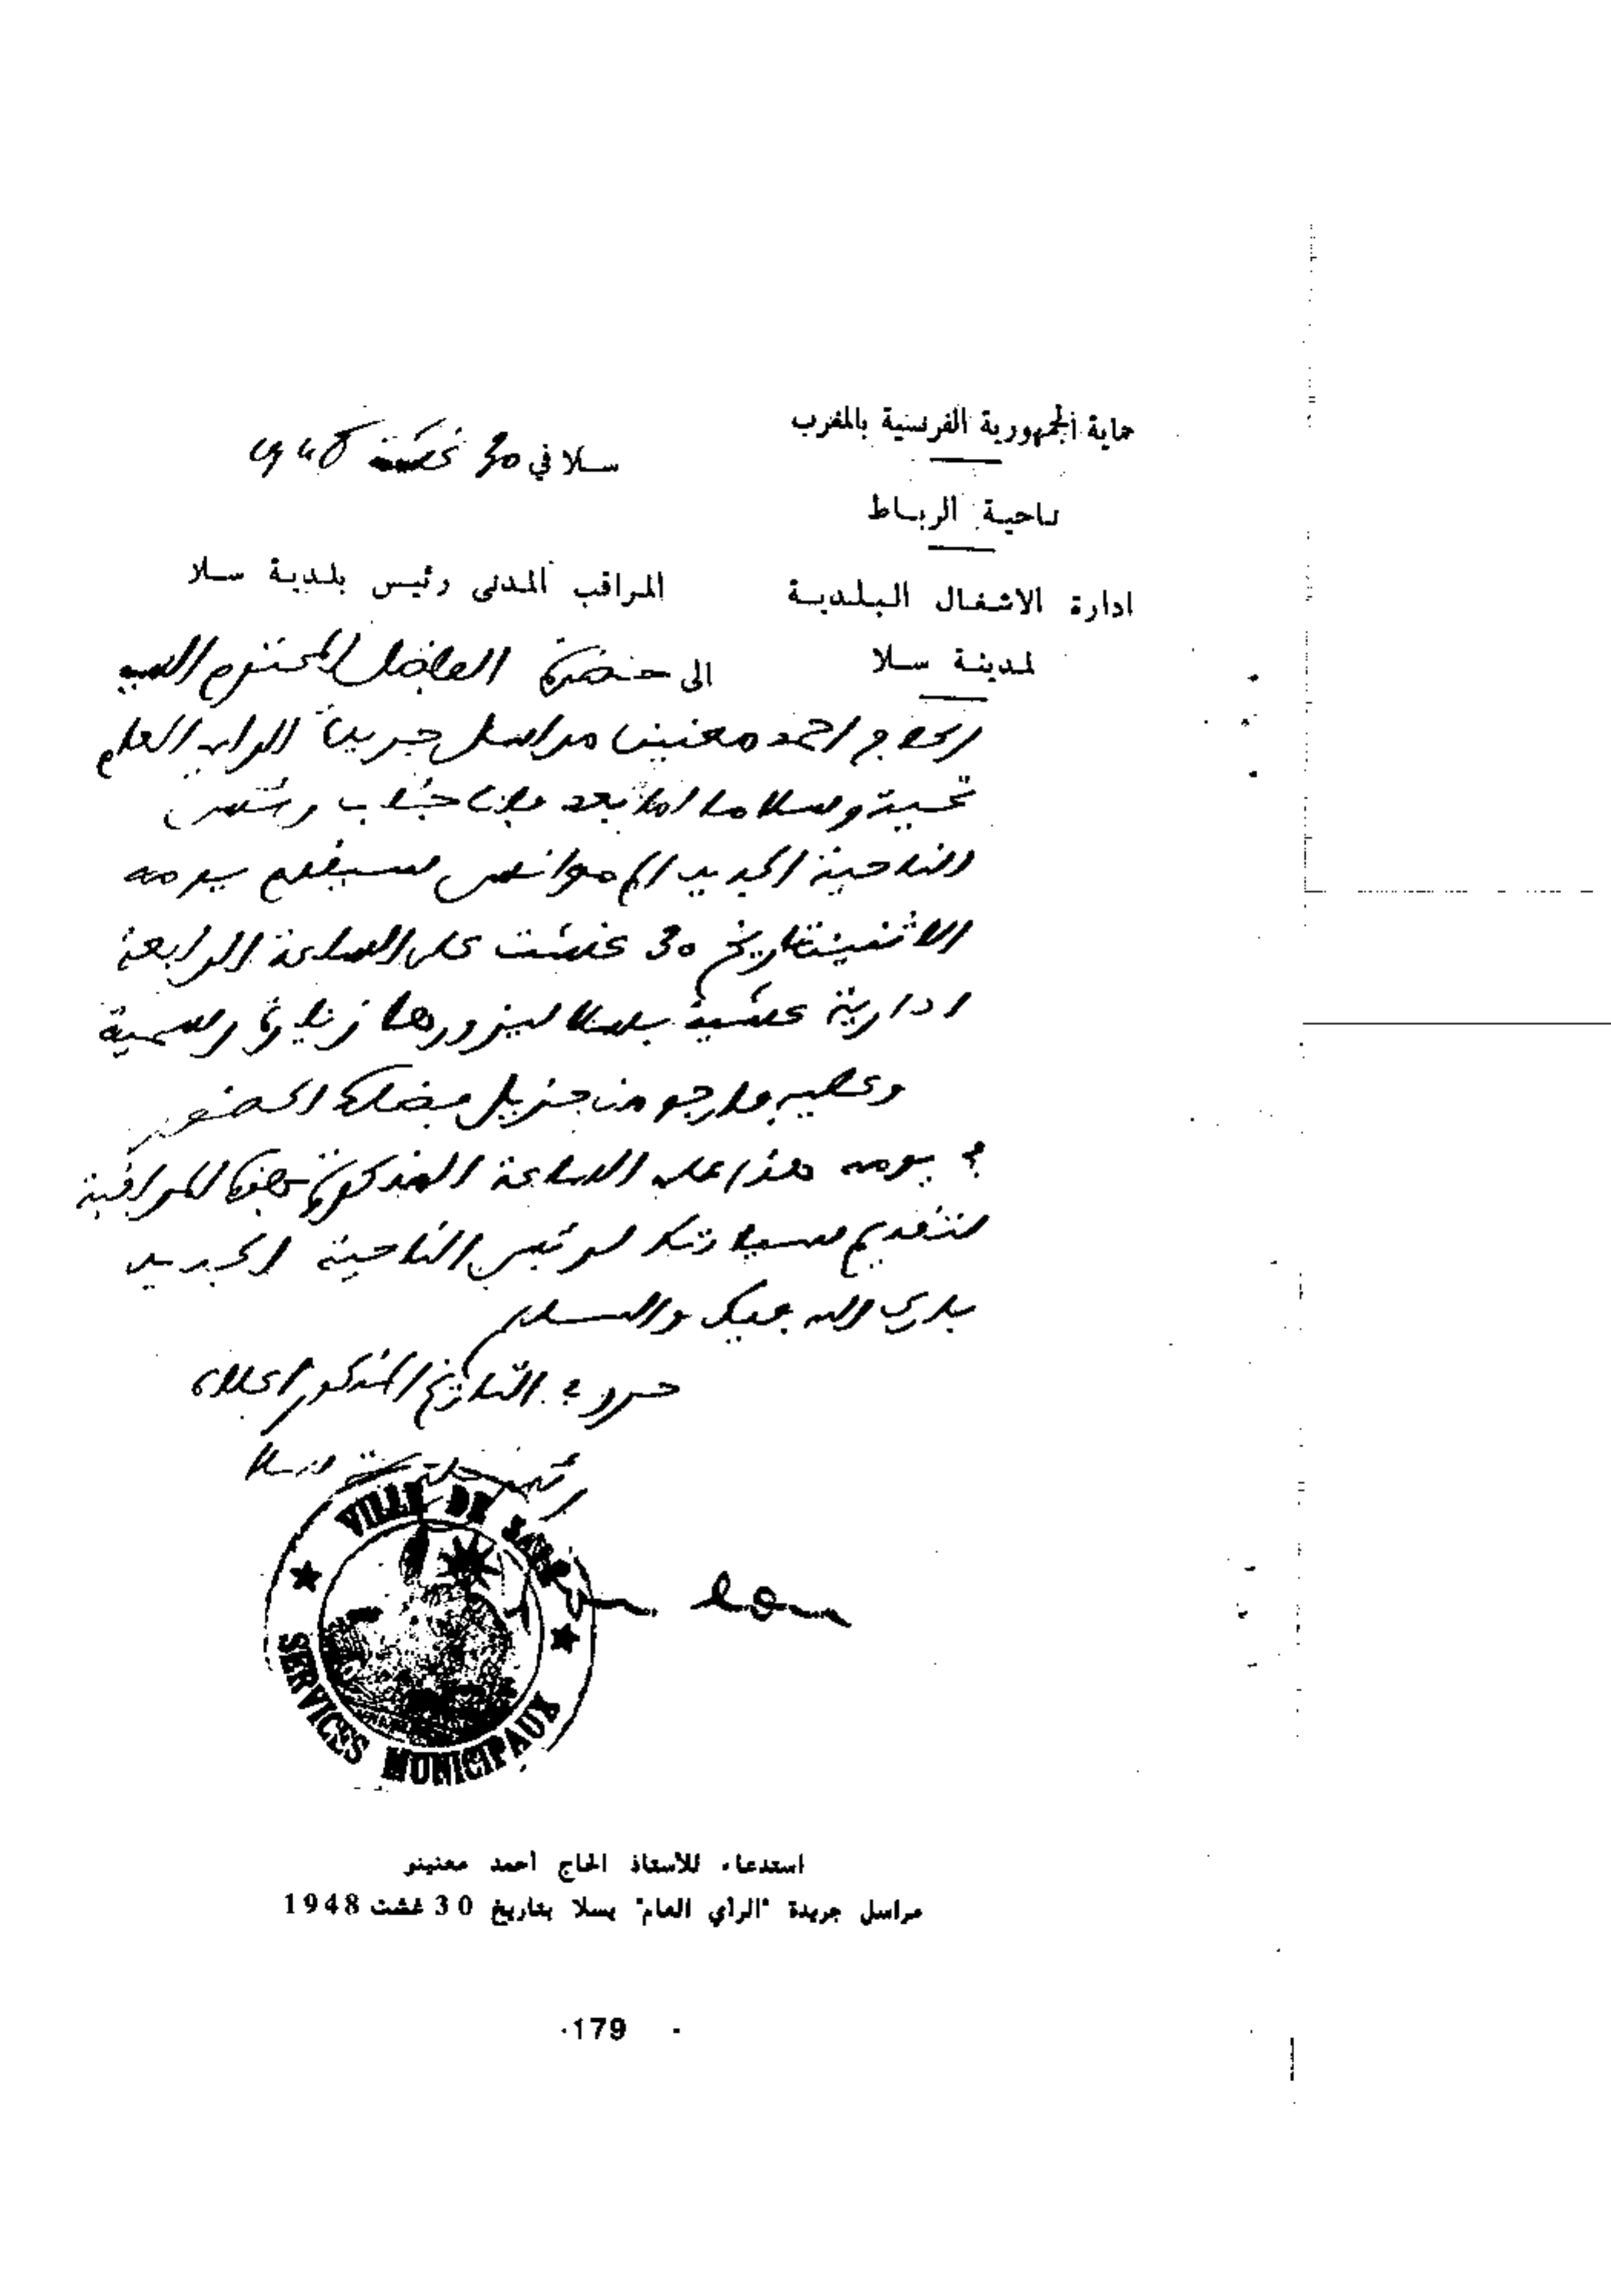 حماية الجمهورية الفرنسية بالمغرب
ناحية الرباط
ادارة الاشغال البلدية
لمدينة سلا
سلا في 30 غشت 1948
المراقب المدنى رئيس بلدية سلا
الى حضرة الفاضل المحترم السيد
الحاج احمد معنين مراسل جريدة الراي العام
تحية وسلاما اما بعد فان جناب رئيس
الناحية الجديد سيقدم يومه
الاثنين تاريخ 30 غشت على الساعة الرابعة
ادارية عشية بسلا ليزورها زيارة رسمية
وعليه فارجو من جزيل فضلك الحضور
في يومه هذا على الساعة المذكورة للمراقبة
لتقديم سيادتك لرئيس الناحية الجديد
بارك الله فيك والسلام
حرر في التاريخ المذكور اعلاه
رئيس سلا
VILLE DE SALÉ
SERVICES MUNICIPAUX
استدعاء للأستاذ الحاج أحمد معنينو
مراسل جريدة "الرأي العام" بسلا بتاريخ 30 غشت 1948
179